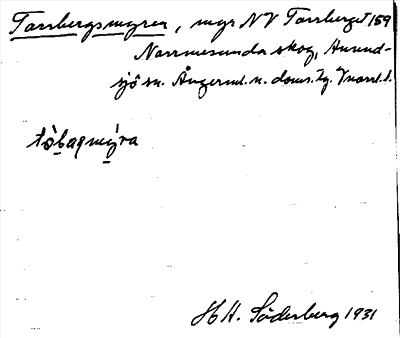 Tarrbergsmyren, myr NV Tarrberget 159
Norrmesunda skog, Anund-
sjö sn. Ångerml. n. doms. tg. Vnorrl. l.
tò̀baqmýra
H H. Söderberg 1931